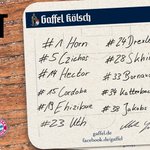 Gaffel Kölsch
#1 Horn
#5 Czichos
#14 Hector
#15 Cordoba
#19 Ehizibue
#23 Uth
#24 Drexler
#28 Skhiri
#33
#34 Katterbach
#38 Jakobs
gaffel.de
facebook.de/gaffel